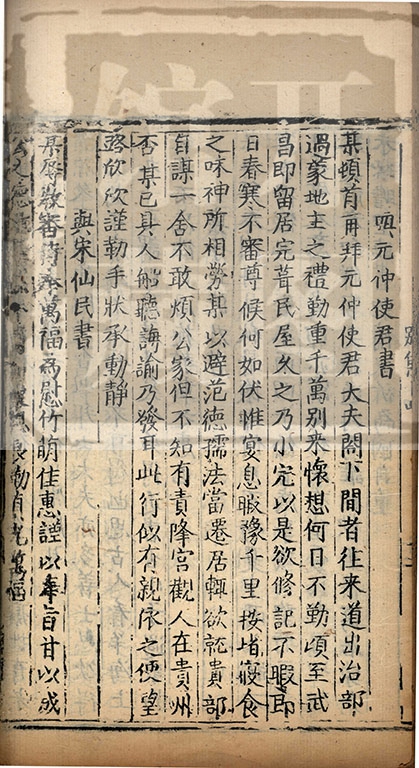 與元仲使君書
某頓首再拜元仲使君大夫閤下間者往来道出治部
過蒙地主之禮勤重千萬别来懷想何日不勤頃至武
昌即留居完葺民屋久之乃小完以是欲修記不暇即
日春寒不審尊候何如伏惟宴息暇豫千里按堵寢食
之味神所相勞某以避范德孺法當遷居輒欲就貴部
自謀一舍不敢煩公家但不知有責降宫觀人在貴州
否某已具人船聽誨諭乃發耳此行似有親依之便望
欣欣謹勒手狀承動静
與宋仙民書
辱教審侍奉萬福為慰竹萌佳惠謹以奉旨甘以成